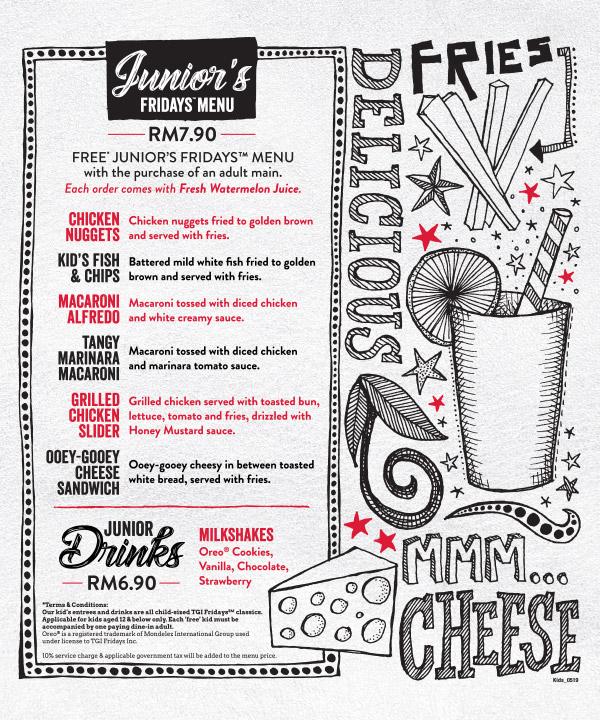 Junior's
FRIDAYS™ MENU
RM7.90
FREE* JUNIOR'S FRIDAYS™ MENU
with the purchase of an adult main.
Each order comes with Fresh Watermelon Juice.
CHICKEN
NUGGETS
Chicken nuggets fried to golden brown
and served with fries.
KID'S FISH
& CHIPS
Battered mild white fish fried to golden
brown and served with fries.
MACARONI
ALFREDO
Macaroni tossed with diced chicken
and white creamy sauce.
TANGY
MARINARA
MACARONI
Macaroni tossed with diced chicken
and marinara tomato sauce.
GRILLED
CHICKEN
SLIDER
Grilled chicken served with toasted bun,
lettuce, tomato and fries, drizzled with
Honey Mustard sauce.
OOEY-GOOEY
CHEESE
SANDWICH
Ooey-gooey cheesy in between toasted
white bread, served with fries.
JUNIOR
Drinks
RM6.90
MILKSHAKES
Oreo® Cookies,
Vanilla, Chocolate,
Strawberry
*Terms & Conditions:
Our kid's entrees and drinks are all child-sized TGI Fridays™ classics.
Applicable for kids aged 12 & below only. Each 'free' kid must be
accompanied by one paying dine-in adult.
Oreo® is a registered trademark of Mondelez International Group used
under license to TGI Fridays Inc.
10% service charge & applicable government tax will be added to the menu price.
DELICIOUS
FRIES
MMM...
CHEESE
Kids_0519